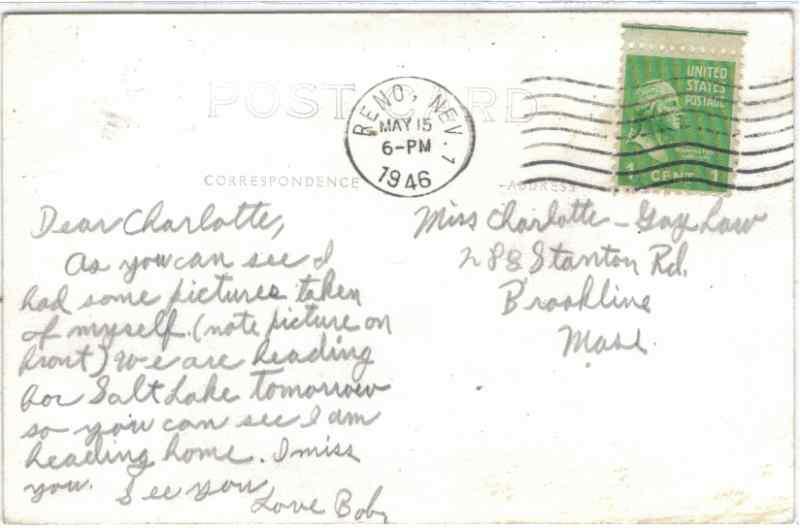 POST CARD
RENO, NEV. 1
MAY 15
6-PM
1946
UNITED
STATES
POSTAGE
1 CENT 1
CORRESPONDENCE
ADDRESS
Dear Charlotte,
As you can see I
had some pictures taken
of myself. (note picture on
front) We are heading
for Salt Lake tomorrow
so you can see I am
heading home. I miss
you. See you
Love Bob
Miss Charlotte - Gay Law
288 Stanton Rd.
Brookline
Mass.